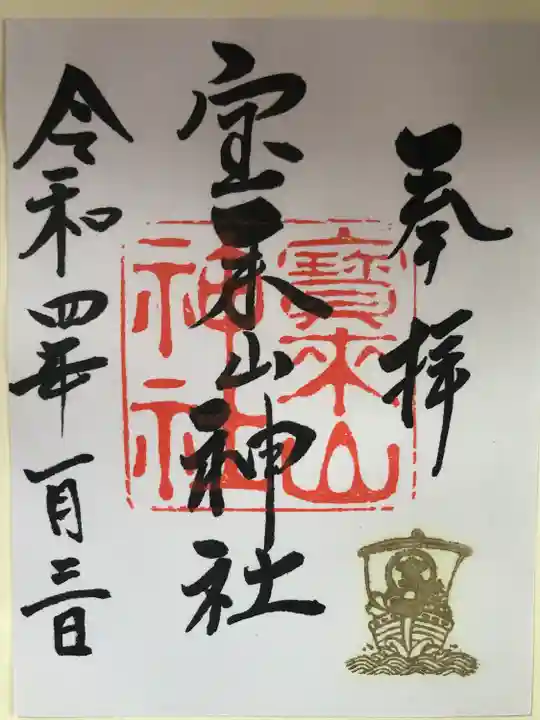 奉拝
寳來山神社
宝来山神社
令和四年一月三日